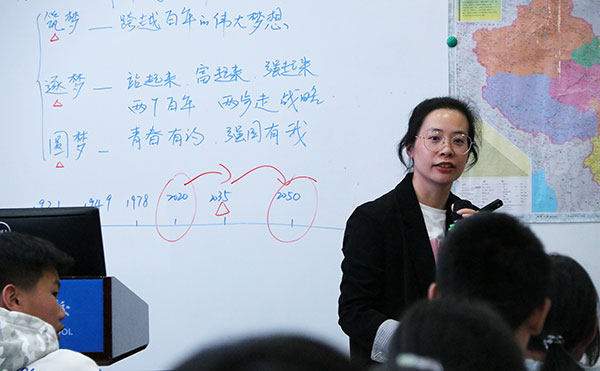 筑梦 — 跨越百年的伟大梦想
逐梦 — 站起来 富起来 强起来
两个百年 两步走 战略
圆梦 — 青春有为 强国有我
1921 1949 1978 2020 2035 2050